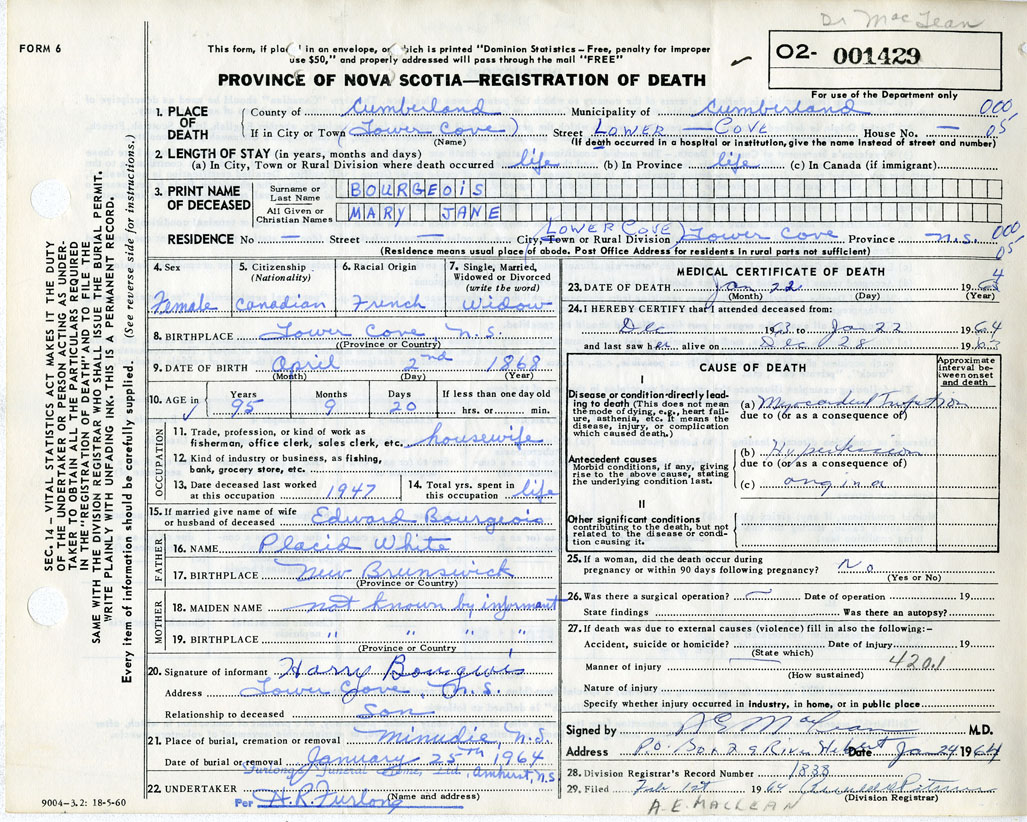 Dr MacLean
FORM 6
This form, if placed in an envelope, on which is printed "Dominion Statistics – Free, penalty for improper
use $50," and properly addressed will pass through the mail "FREE"
O2- 001429
PROVINCE OF NOVA SCOTIA—REGISTRATION OF DEATH
For use of the Department only
1. PLACE OF DEATH
County of Cumberland Municipality of Cumberland 000
If in City or Town (Lower Cove) Street LOWER — COVE House No. — 05
(Name) (If death occurred in a hospital or institution, give the name instead of street and number)
2. LENGTH OF STAY (in years, months and days)
(a) In City, Town or Rural Division where death occurred life (b) In Province life (c) In Canada (if immigrant)
3. PRINT NAME OF DECEASED
Surname or Last Name BOURGEOIS
All Given or Christian Names MARY JANE
RESIDENCE No — Street — City, Town or Rural Division (LOWER COVE) Lower Cove Province N.S. 000 05
(Residence means usual place of abode. Post Office Address for residents in rural parts not sufficient)
4. Sex Female
5. Citizenship (Nationality) Canadian
6. Racial Origin French
7. Single, Married, Widowed or Divorced (write the word) Widow
8. BIRTHPLACE Lower Cove N.S.
((Province or Country)
9. DATE OF BIRTH April 2nd 1868
(Month) (Day) (Year)
10. AGE in Years 95 Months 9 Days 20 If less than one day old hrs. or min.
OCCUPATION
11. Trade, profession, or kind of work as
fisherman, office clerk, sales clerk, etc. housewife
12. Kind of industry or business, as fishing,
bank, grocery store, etc.
13. Date deceased last worked
at this occupation 1947
14. Total yrs. spent in
this occupation life
15. If married give name of wife
or husband of deceased Edward Bourgeois
FATHER
16. NAME Placid White
17. BIRTHPLACE New Brunswick
(Province or Country)
MOTHER
18. MAIDEN NAME not known by informant
19. BIRTHPLACE " " " "
(Province or Country
20. Signature of informant Harry Bourgeois
Address Lower Cove, N.S.
Relationship to deceased Son
21. Place of burial, cremation or removal Minudie, N.S.
Date of burial or removal January 25th 1964
Furlong's Funeral Home, Ltd., Amherst, N.S.
22. UNDERTAKER
(Name and address)
Per H.R. Furlong
9004-3.2: 18-5-60
MEDICAL CERTIFICATE OF DEATH
23. DATE OF DEATH Jan 22 19 4
(Month) (Day) (Year)
24. I HEREBY CERTIFY that I attended deceased from:
Dec 1963 to Jan 22 1964
and last saw her alive on Dec 28 1963
CAUSE OF DEATH
Approximate interval between onset and death
I
Disease or condition directly leading to death (This does not mean the mode of dying, e.g., heart failure, asthenia, etc. It means the disease, injury, or complication which caused death.)
(a) Myocardial Infarction
due to (or as a consequence of)
Antecedent causes
Morbid conditions, if any, giving rise to the above cause, stating the underlying condition last.
(b) Hypertension
due to (or as a consequence of)
(c) angina
II
Other significant conditions
contributing to the death, but not related to the disease or condition causing it.
25. If a woman, did the death occur during
pregnancy or within 90 days following pregnancy? No
(Yes or No)
26. Was there a surgical operation? — Date of operation 19
State findings Was there an autopsy?
27. If death was due to external causes (violence) fill in also the following:–
Accident, suicide or homicide? Date of injury 19
(State which)
Manner of injury 420.1
(How sustained)
Nature of injury
Specify whether injury occurred in industry, in home, or in public place
Signed by A E MacLean M.D.
Address P.O. Box 29 River Hebert Date Jan 24 1964
28. Division Registrar's Record Number 1838
29. Filed Feb 1st 1964
(Division Registrar)
A.E. MACLEAN
SEC. 14 – VITAL STATISTICS ACT MAKES IT THE DUTY
OF THE UNDERTAKER OR PERSON ACTING AS UNDER-
TAKER TO OBTAIN ALL THE PARTICULARS REQUIRED
IN THE "REGISTRATION OF DEATH" AND TO FILE THE
SAME WITH THE DIVISION REGISTRAR WHO SHALL ISSUE THE BURIAL PERMIT.
WRITE PLAINLY WITH UNFADING INK. THIS IS A PERMANENT RECORD.
Every item of information should be carefully supplied. (See reverse side for instructions.)